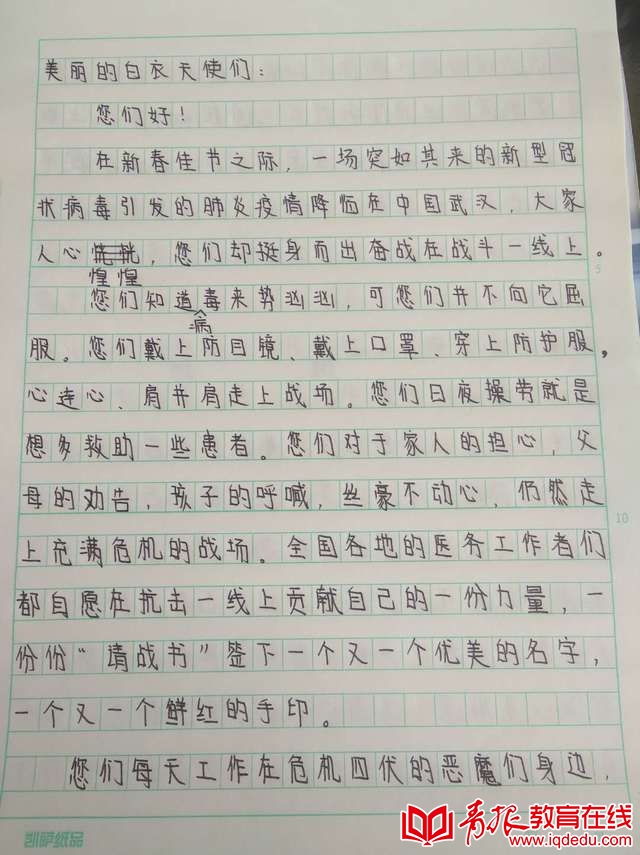 美丽的白衣天使们：
您们好！
在新春佳节之际，一场突如其来的新型冠
状病毒引发的肺炎疫情降临在中国武汉，大家
人心惶惶，您们却挺身而出奋战在战斗一线上。
您们知道病毒来势汹汹，可您们并不向它屈
服。您们戴上防目镜、戴上口罩、穿上防护服，
心连心、肩并肩走上战场。您们日夜操劳就是
想多救助一些患者。您们对于家人的担心，父
母的劝告，孩子的呼喊，丝豪不动心，仍然走
上充满危机的战场。全国各地的医务工作者们
都自愿在抗击一线上贡献自己的一份力量，一
份份“请战书”签下一个又一个优美的名字，
一个又一个鲜红的手印。
您们每天工作在危机四伏的恶魔们身边，
5
10
凯萨纸品
青报教育在线
www.iqdedu.com